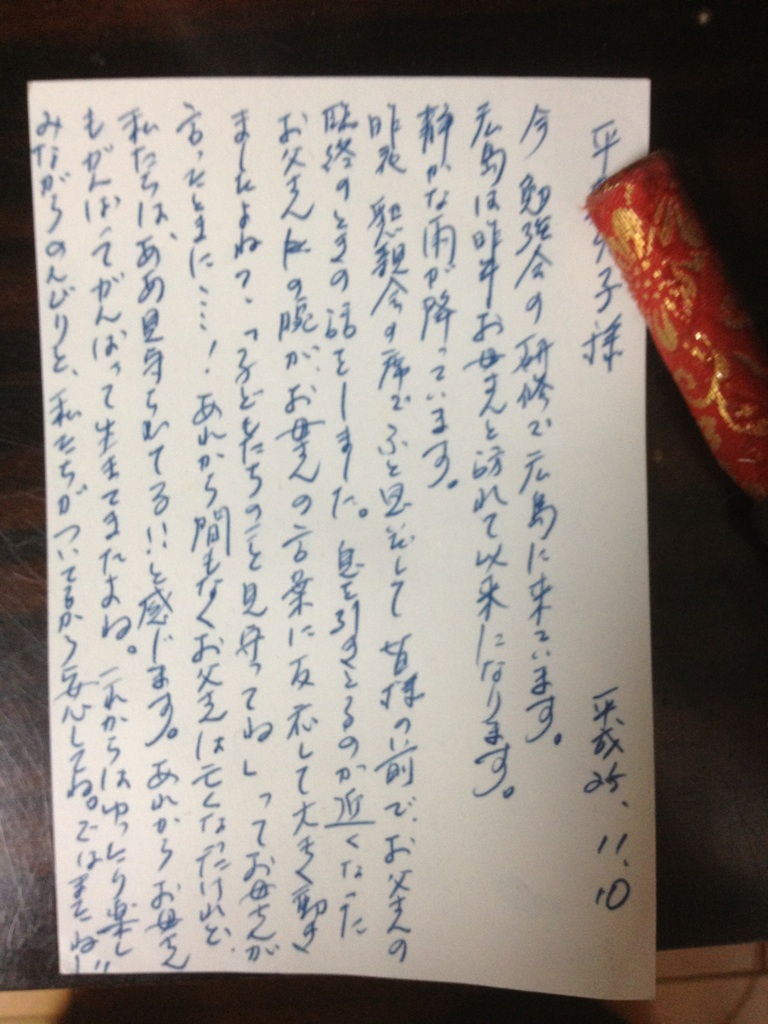 平 子様 平成25、11、10
今 勉強会の研修で広島に来ています。
広島は昨年お母さんと訪れて以来になります。
静かな雨が降っています。
昨夜 懇親会の席でふと思い出して皆様の前で、お父さんの
臨終のときの話をしました。息を引きとるのが近くなった
お父さんの腕が、お母さんの言葉に反応して大きく動き
ましたよねっ、「子どもたちのこと見守ってね」ってお母さんが
言ったときに……！あれから間もなくお父さんは亡くなったけれど、
私たちは、ああ見守られてる!!と感じます。あれからお母さん
もがんばってがんばって生きてきたよね。これからはゆったり楽し
みながらのんびりと、私たちがついてるから安心してね。ではまたね!!